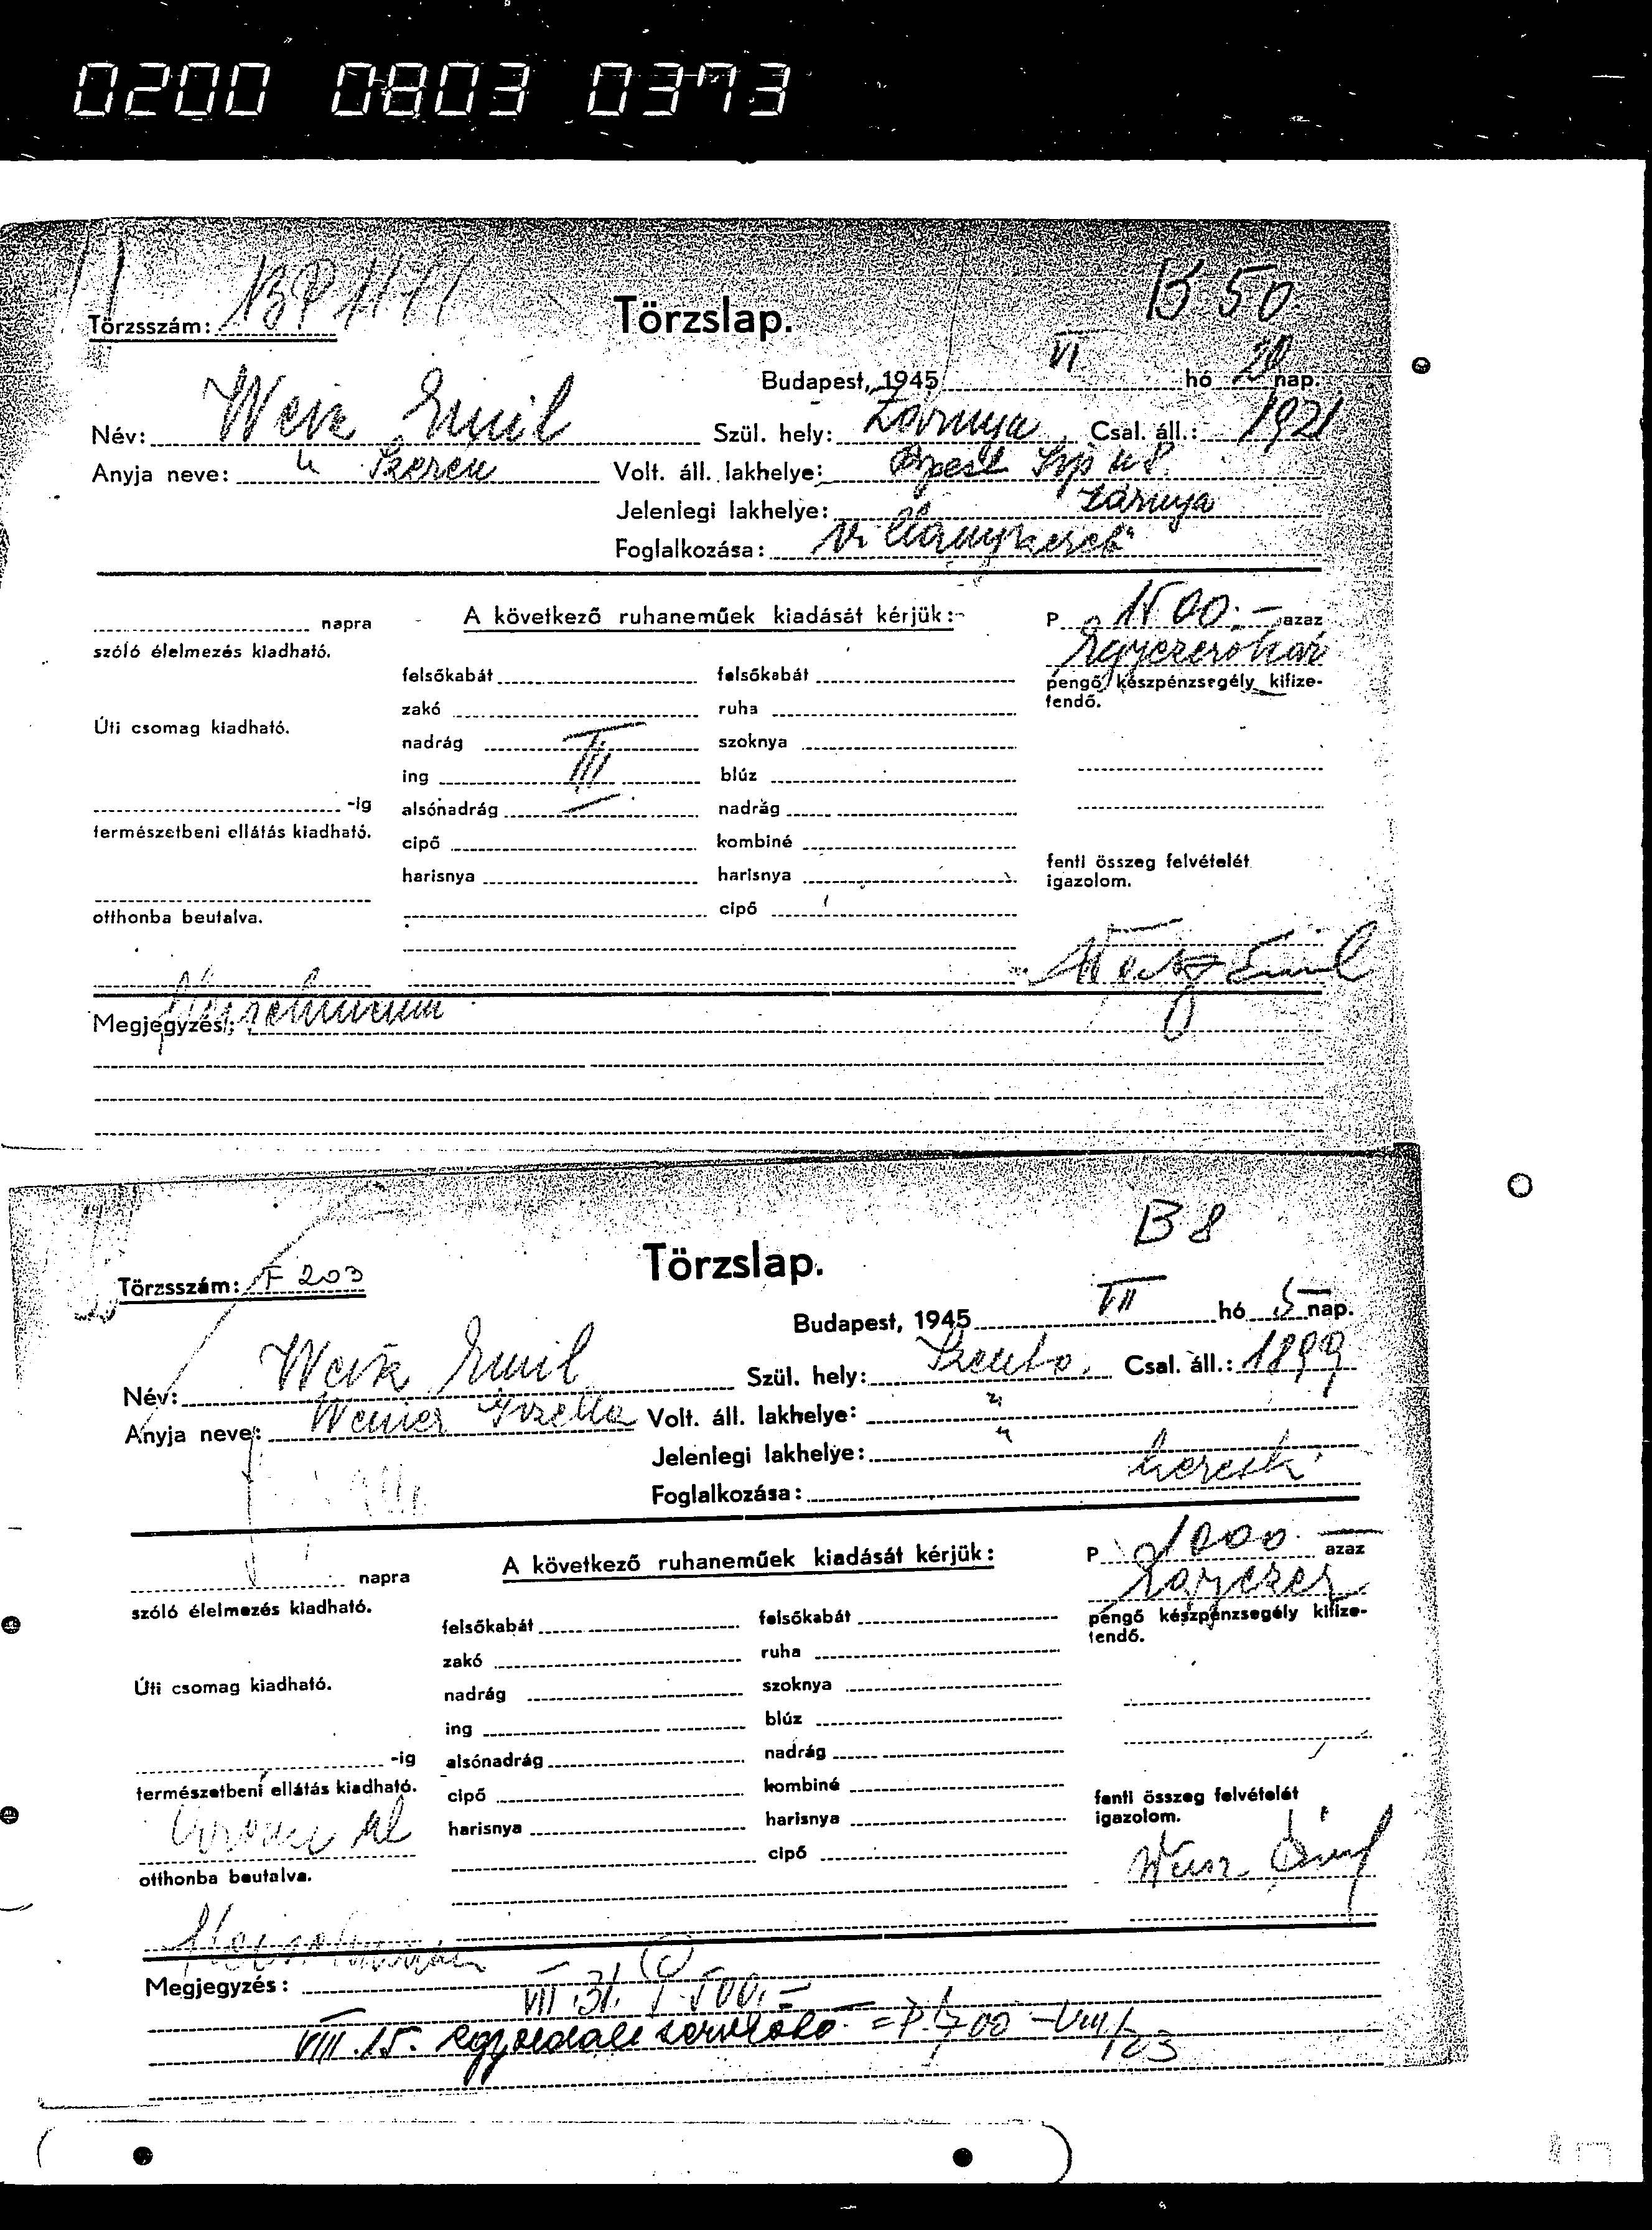 0200 0803 0373
B 50
Törzsszám: BP 1171 Törzslap.
Budapest, 1945 VI hó 20 nap.
Név: Weisz Emil Szül. hely: Csal. áll.: 1921
Anyja neve: Szeren Volt. áll. lakhelye: Bpest
Jelenlegi lakhelye:
Foglalkozása:
A következő ruhaneműek kiadását kérjük:
P 1500.- azaz
napra
szóló élelmezés kiadható.
felsőkabát felsőkabát
pengő készpénzsegély kifize-
tendő.
zakó ruha
Úti csomag kiadható.
nadrág szoknya
ing blúz
-ig
alsónadrág nadrág
természetbeni ellátás kiadható.
cipő kombiné
fenti összeg felvételét
igazolom.
harisnya harisnya
otthonba beutalva.
cipő
Weisz Emil
Megjegyzés:
B 8
Törzsszám: F 203 Törzslap.
Budapest, 1945 VII hó 5 nap.
Név: Weisz Emil Szül. hely: Csal. áll.: 1899
Anyja neve: Gizella Volt. áll. lakhelye: "
Jelenlegi lakhelye: "
Foglalkozása: keresk.
A következő ruhaneműek kiadását kérjük:
P 1000.- azaz
Egyezer
napra
szóló élelmezés kiadható.
felsőkabát felsőkabát
pengő készpénzsegély kifize-
tendő.
zakó ruha
Úti csomag kiadható.
nadrág szoknya
ing blúz
-ig
alsónadrág nadrág
természetbeni ellátás kiadható.
cipő kombiné
fenti összeg felvételét
igazolom.
harisnya harisnya
cipő
otthonba beutalva.
Weisz
Megjegyzés:
VII.31. P 500.-
VIII.15. = P.